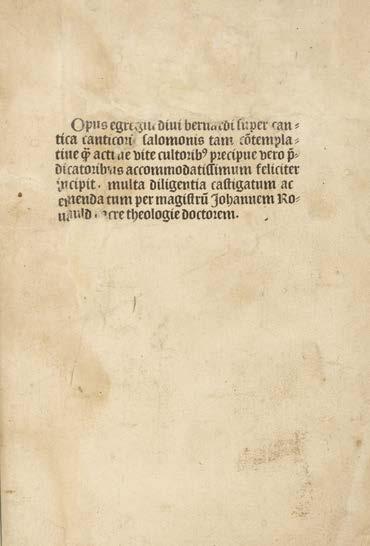 Opus egregiu divi bernardi super can⸗
tica canticorū salomonis tam cōtempla⸗
tiue q̄̄ actiue vite cultoribꝰ precipue vero p̄⸗
dicatoribus accommodatissimum feliciter
incipit . multa diligentia castigatum ac
emenda tum per magistrū Johannem Ro⸗
uauld sacre theologie doctorem.